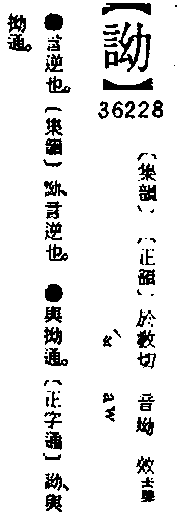 【詏】
36228
〔集韻〕〔正韻〕於敎切 音坳 效去聲
aw
●言逆也。〔集韻〕詏、言逆也。●與拗通。〔正字通〕詏、與
拗通。